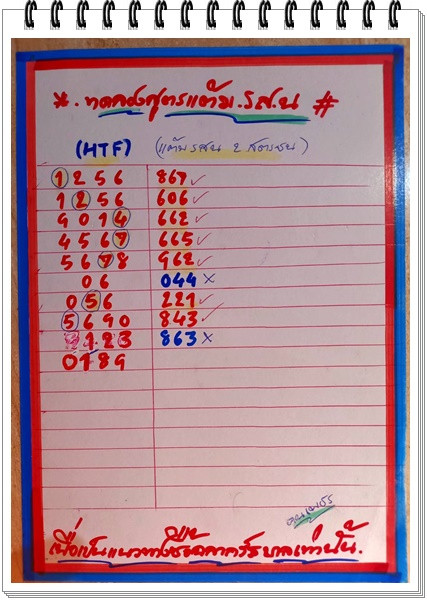 *. ทดลองสูตรแต้ม.รส.น #
(HTF) (แต้มรสน 2 สตารชน)
1256 867 ✓
1256 606 ✓
9014 662 ✓
4567 665 ✓
5678 962 ✓
06 044 ×
056 221 ✓
5690 843 ✓
123 863 ×
0789
เพื่อเป็นแนวทางซื้อฉลากรัฐบาลเท่านั้น.